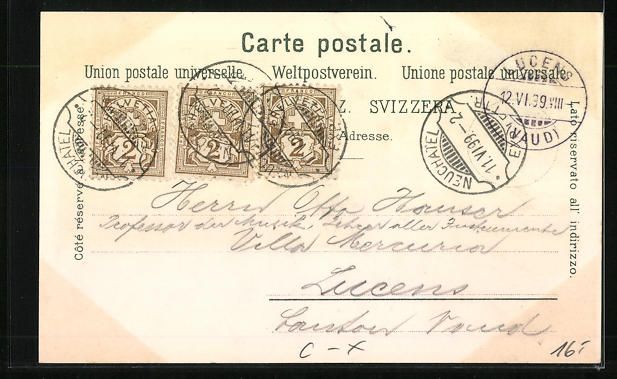 Carte postale.
Union postale universelle. Weltpostverein. Unione postale universale
Z. SVIZZERA
Adresse.
Côté réservé à l'adresse.
Lato riservato all' indirizzo.
HELVETIA
2
2
2
NEUCHATEL
11.VI.99.–2
LUCENS
12.VI.99.VIII
(VAUD)
Herrn Otto Hauser
Professor der Musik, Lehrer aller Instrumente
Villa Mercuria
Lucens
Canton Vaud
C-X
16.-